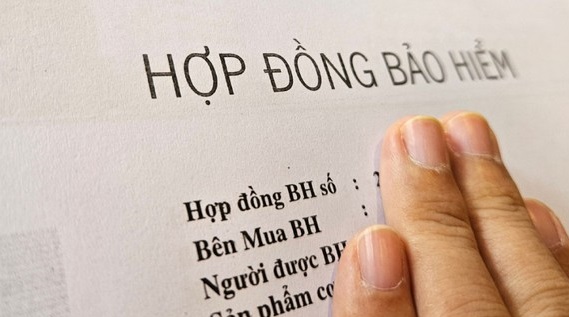 HỢP ĐỒNG BẢO HIỂM
Hợp đồng BH số :
Bên Mua BH :
Người được BH
Sản phẩm